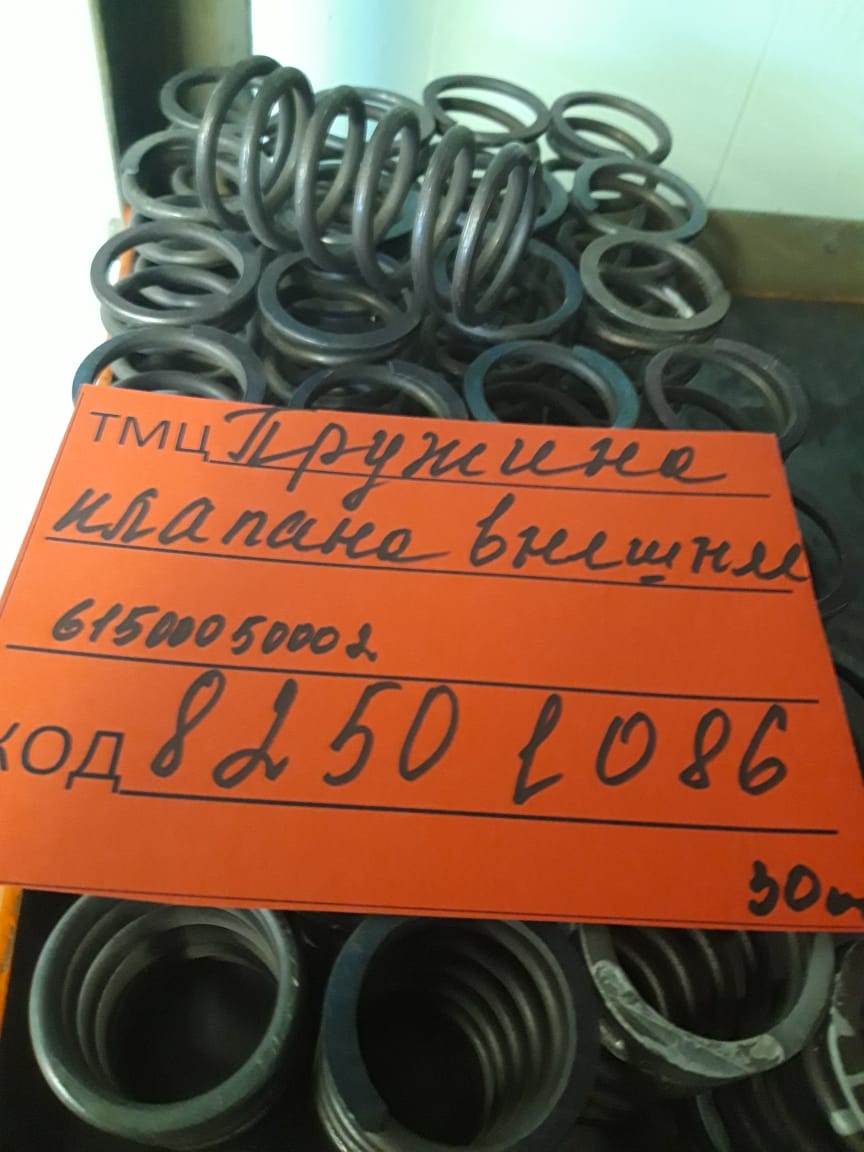 ТМЦ Пружина
клапана внешняя
61500050002
КОД 8250 1086
30ш